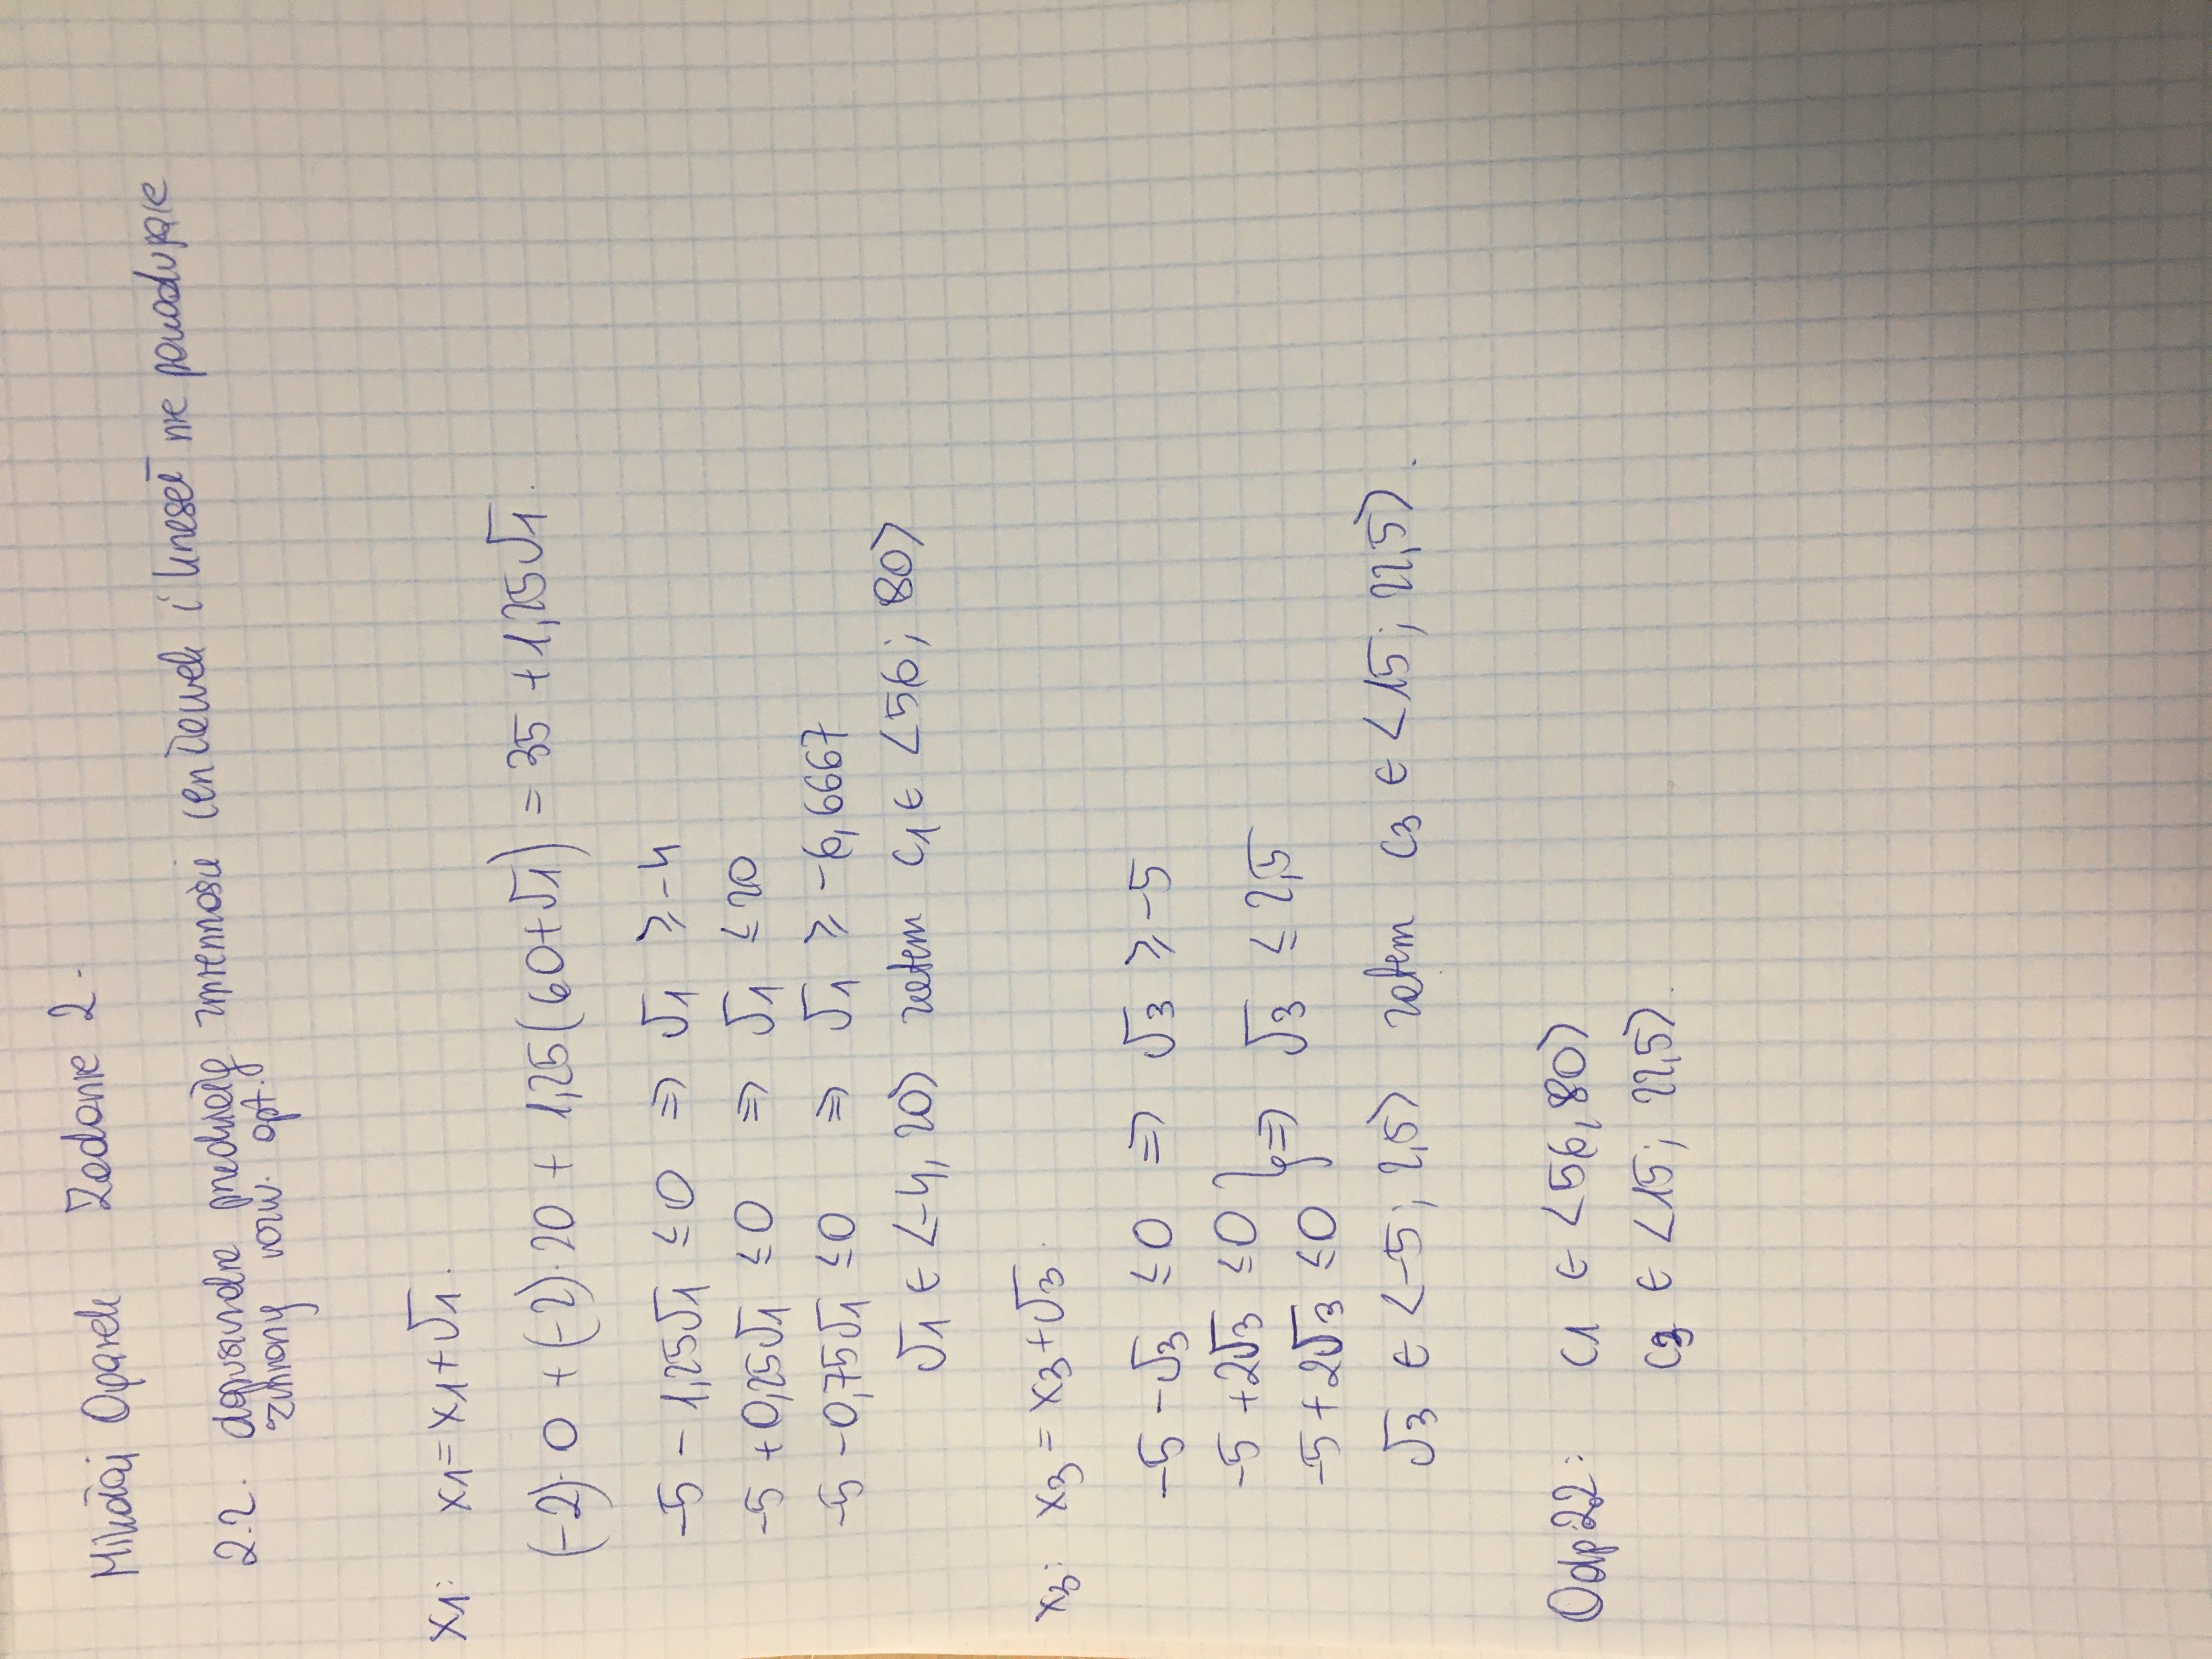 Mikołaj Oparek Zadanie 2.
2.2. dopuszczalne przedziały zmienności cen ławek i krzeseł nie powodujące
zmiany rozw. opt.
x1: x1 = x1 + √1.
(-2)·0 + (-2)·20 + 1,25(60+√1) = 35 + 1,25√1.
-5 - 1,25√1 ≤ 0 ⇒ √1 ≥ -4
-5 + 0,25√1 ≤ 0 ⇒ √1 ≤ 20
-5 - 0,75√1 ≤ 0 ⇒ √1 ≥ -6,6667
√1 ∈ <-4, 20> zatem c1 ∈ <56; 80>
x3: x3 = x3 + √3.
-5 - √3 ≤ 0 ⇒ √3 ≥ -5
-5 + 2√3 ≤ 0
-5 + 2√3 ≤ 0 } ⇒ √3 ≤ 2,5
√3 ∈ <-5; 2,5> zatem c3 ∈ <15; 22,5>.
Odp 2.2: c1 ∈ <56, 80>
c3 ∈ <15; 22,5>.